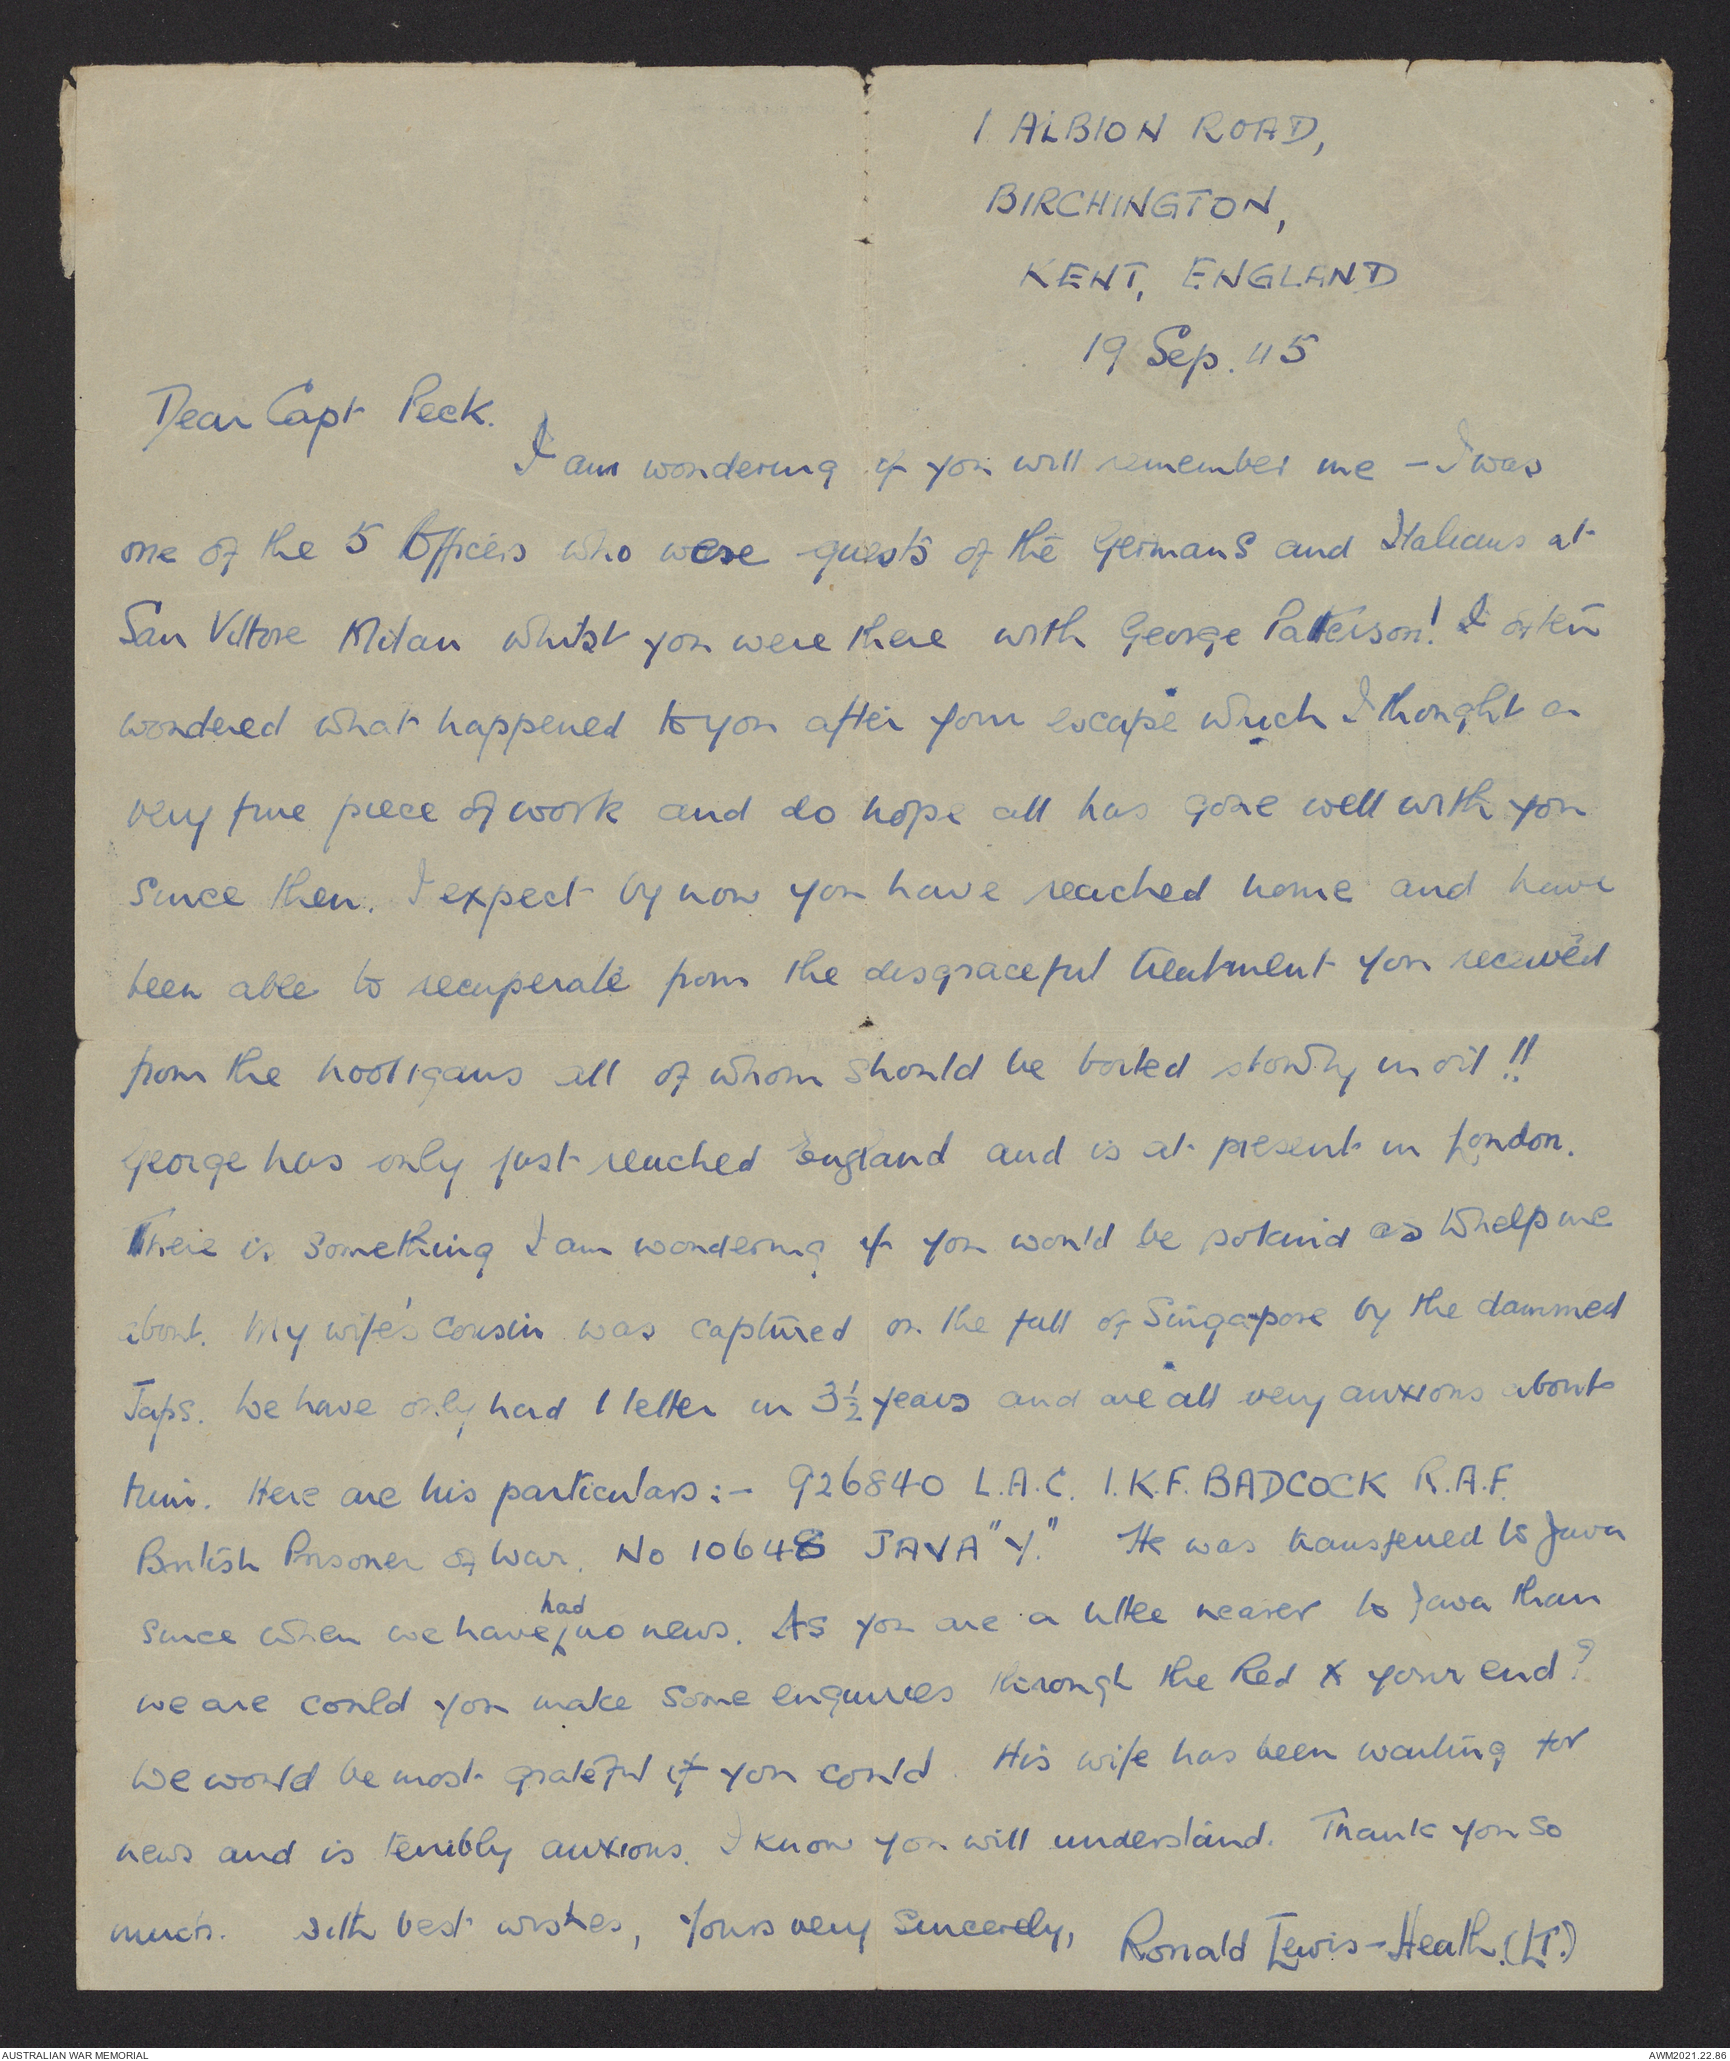 1 ALBION ROAD,
BIRCHINGTON,
KENT, ENGLAND
19 Sep. 45
Dear Capt Peck.
I am wondering if you will remember me - I was
one of the 5 Officers who were guests of the Germans and Italians at
San Vittore Milan whilst you were there with George Patterson! I often
wondered what happened to you after your escape which I thought a
very fine piece of work and do hope all has gone well with you
since then. I expect by now you have reached home and have
been able to recuperate from the disgraceful treatment you received
from the hooligans all of whom should be boiled slowly in oil!!
George has only just reached England and is at present in London.
There is something I am wondering if you would be so kind as to help me
about. My wife's cousin was captured on the fall of Singapore by the dammed
Japs. We have only had 1 letter in 3½ years and are all very anxious about
him. Here are his particulars:- 926840 L.A.C. I.K.F. BADCOCK R.A.F.
British Prisoner of War. No 10648 JAVA "Y." He was transferred to Java
since when we have had no news. As you are a little nearer to Java than
we are could you make some enquiries through the Red X your end?
We would be most grateful if you could. His wife has been waiting for
news and is terribly anxious. I know you will understand. Thank you so
much. With best wishes, Yours very sincerely, Ronald Lewis-Heath. (LT.)
AUSTRALIAN WAR MEMORIAL
AWM2021.22.86